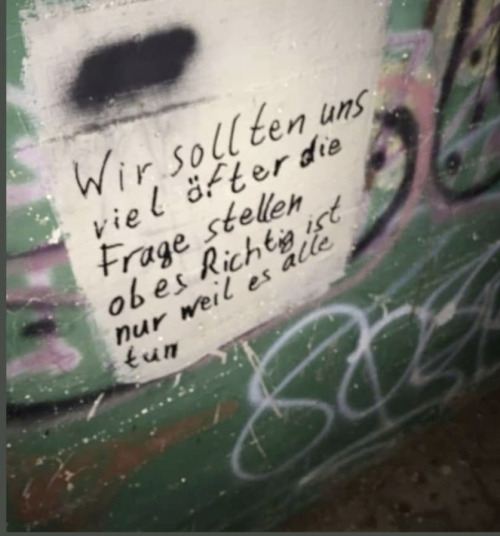 Wir sollten uns
viel öfter die
Frage stellen
ob es Richtig ist
nur weil es alle
tun